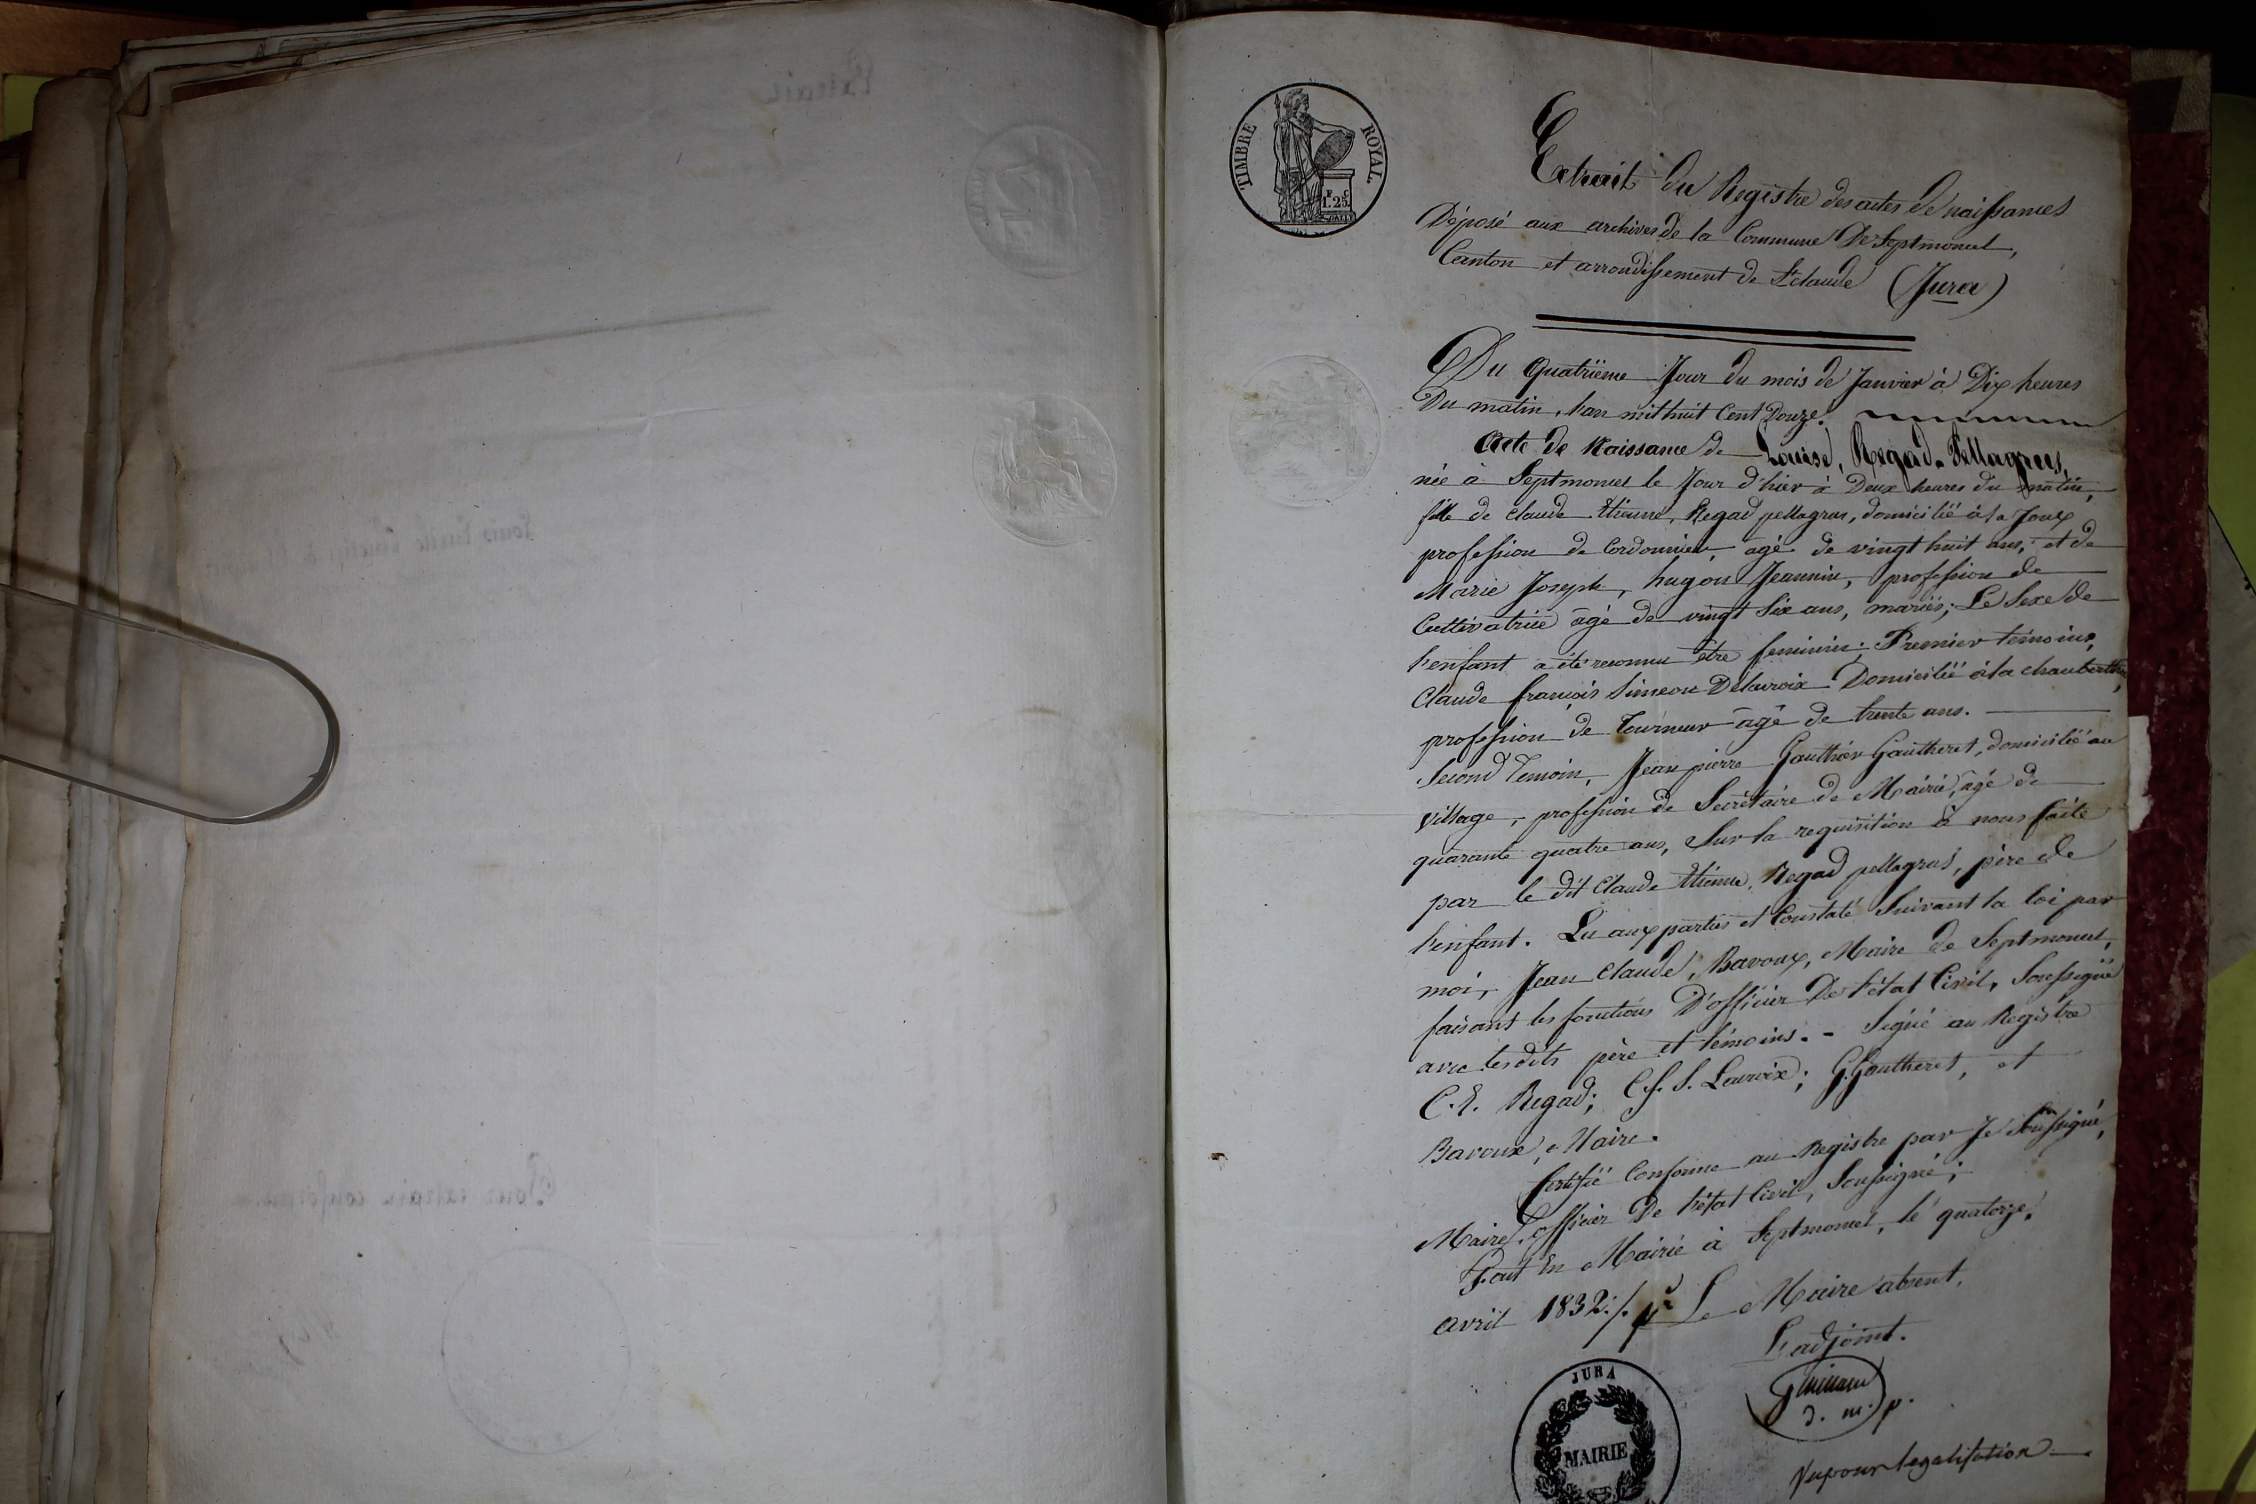 TIMBRE ROYAL
F. C.
1. 25.
Extrait du Registre des actes de naissances
Déposé aux archives de la Commune De Septmoncel,
Canton et arrondissement de St claude (Jura)
Du quatrième Jour du mois de Janvier à Dix heures
Du matin, l'an mil huit Cent Douze.
Acte de Naissance de Louise, Regad-Pellagrus,
née à Septmoncel le Jour d'hier à Deux heures du matin,
fille de claude Etienne, Regad pellagrus, domicilié à la Joux
profession de Cordonnier, agé de vingt huit ans, et de
Marie Joseph, hugon Jeannin, profession de
Cultivatrice âgé de vingt Six ans, mariés; Le Sexe de
l'enfant a été reconnu être feminin; Premier témoins,
Claude françois Simeon Delacroix Domicilié à la
profession de Tourneur âgé de trente ans.
Second Temoin, Jean pierre Gauthier Gautheret, domicilié au
village, profession de Secrétaire de Mairie, âgé de
quarante quatre ans, Sur la requisition à nous faite
par le dit Claude Etienne, Regad pellagrus, père de
l'enfant. Lu aux parties et Constaté Suivant la loi par
moi, Jean Claude, Bavoux, Maire de Septmoncel,
faisant les fonctions D'officier De l'état Civil, Soussigné
avec lesdits père et témoins. - Signé au Registre
C. E. Regad; C. f. S. Lacroix; G. Gautheret, et
Bavoux, Maire.
Certifié Conforme au Registre par Je Soussigné,
Maire, officier De l'état Civil, Soussigné;
Fait En Mairie à Septmoncel, le quatorze
avril 1832 ./. pr Le Maire absent,
L'adjoint.
d. m. p.
JURA
MAIRIE
Vu pour legalisation
Pour extrait conforme
Extrait